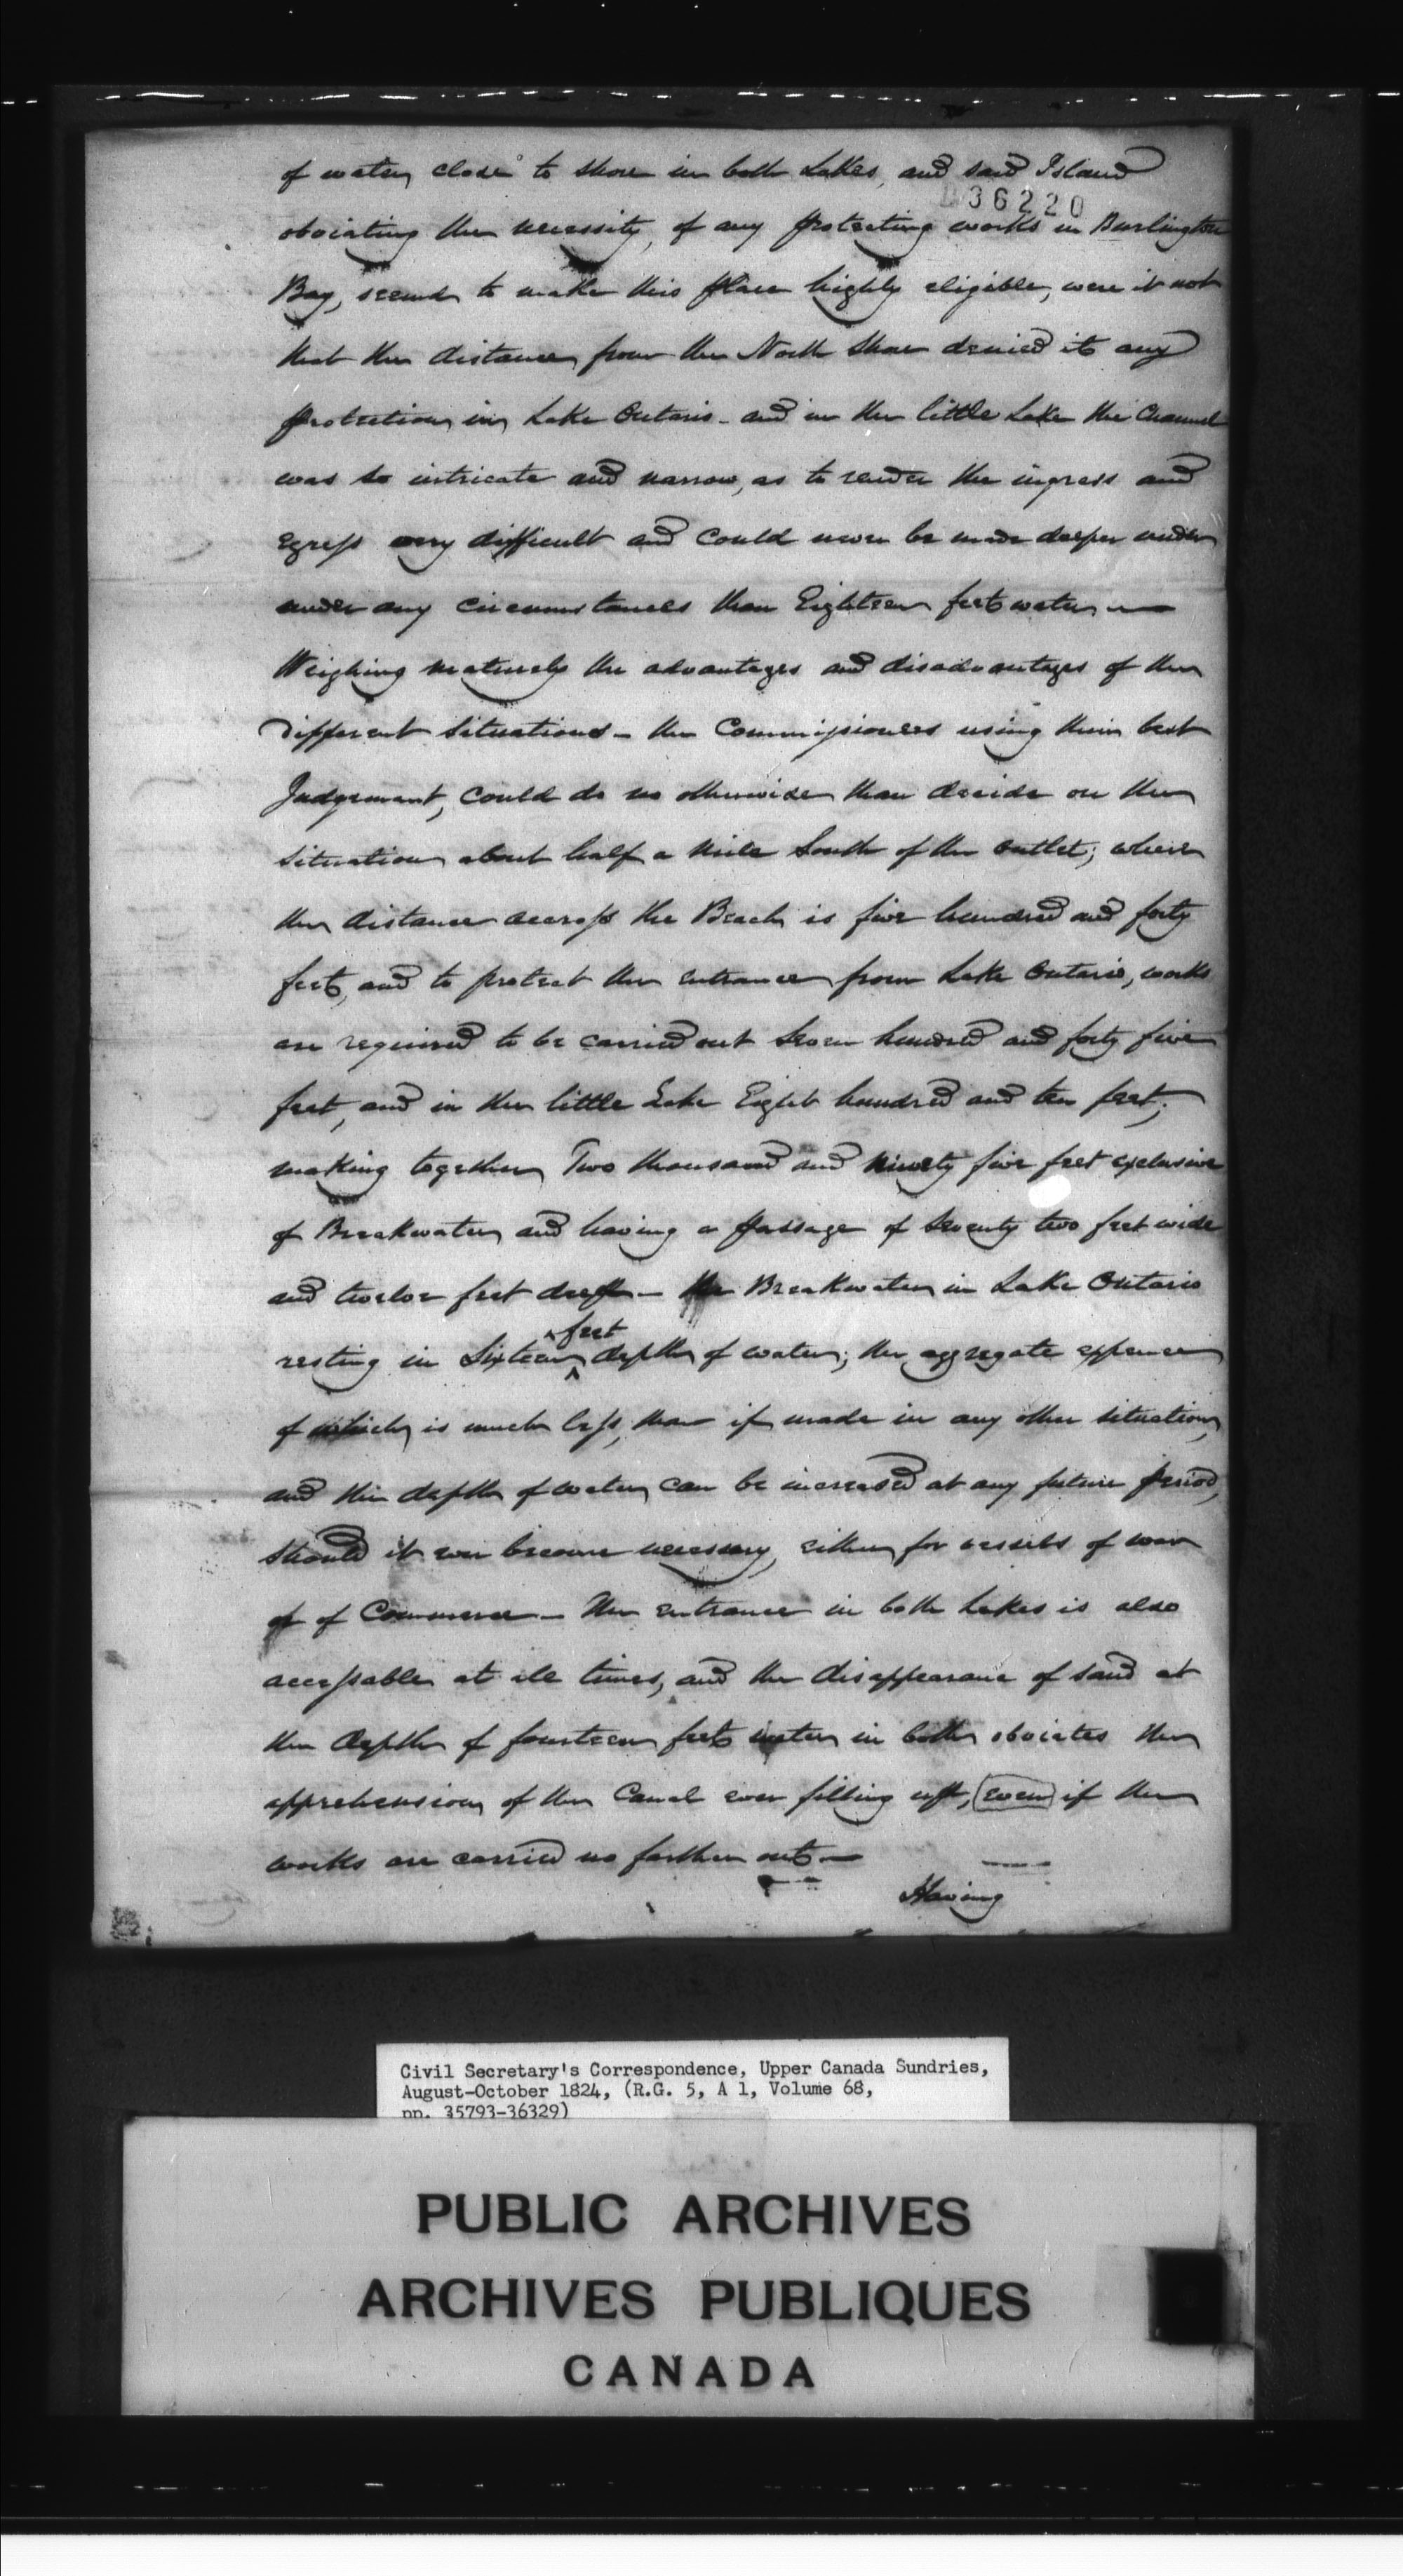 of water close to shore in both Lakes, and said Island
36220
obviating the necessity, of any protecting works in Burlington
Bay, seemed to make this place highly eligible, were it not
that the distance from the North Shore denied it any
protection in Lake Ontario - and in the little Lake the Channel
was so intricate and narrow, as to render the ingress and
egress very difficult and could never be made deeper under
under any circumstances than Eighteen feet water —
Weighing maturely the advantages and disadvantages of the
different situations - the Commissioners using their best
Judgement, could do no otherwise than decide on the
situation about half a mile South of the outlet; where
the distance accross the Beach is five hundred and forty
feet, and to protect the entrance from Lake Ontario, works
are required to be carried out seven hundred and forty five
feet, and in the little Lake Eight hundred and ten feet;
making together Two thousand and ninety five feet exclusive
of Breakwater and having a passage of seventy two feet wide
and twelve feet deep - the Breakwater in Lake Ontario
feet
resting in Sixteen depth of water; the aggregate expence
of which is much less, than if made in any other situation,
and the depth of water can be increased at any future period,
should it ever become necessary, either for vessels of war
of of Commerce - the entrance in both Lakes is also
accessable at all times, and the disappearance of sand at
the depth of fourteen feet water in both obviates the
apprehension of the Canal ever filling up, even if the
works are carried no farther out —
Having
Civil Secretary's Correspondence, Upper Canada Sundries,
August-October 1824, (R.G. 5, A 1, Volume 68,
pp. 35793-36329)
PUBLIC ARCHIVES
ARCHIVES PUBLIQUES
CANADA